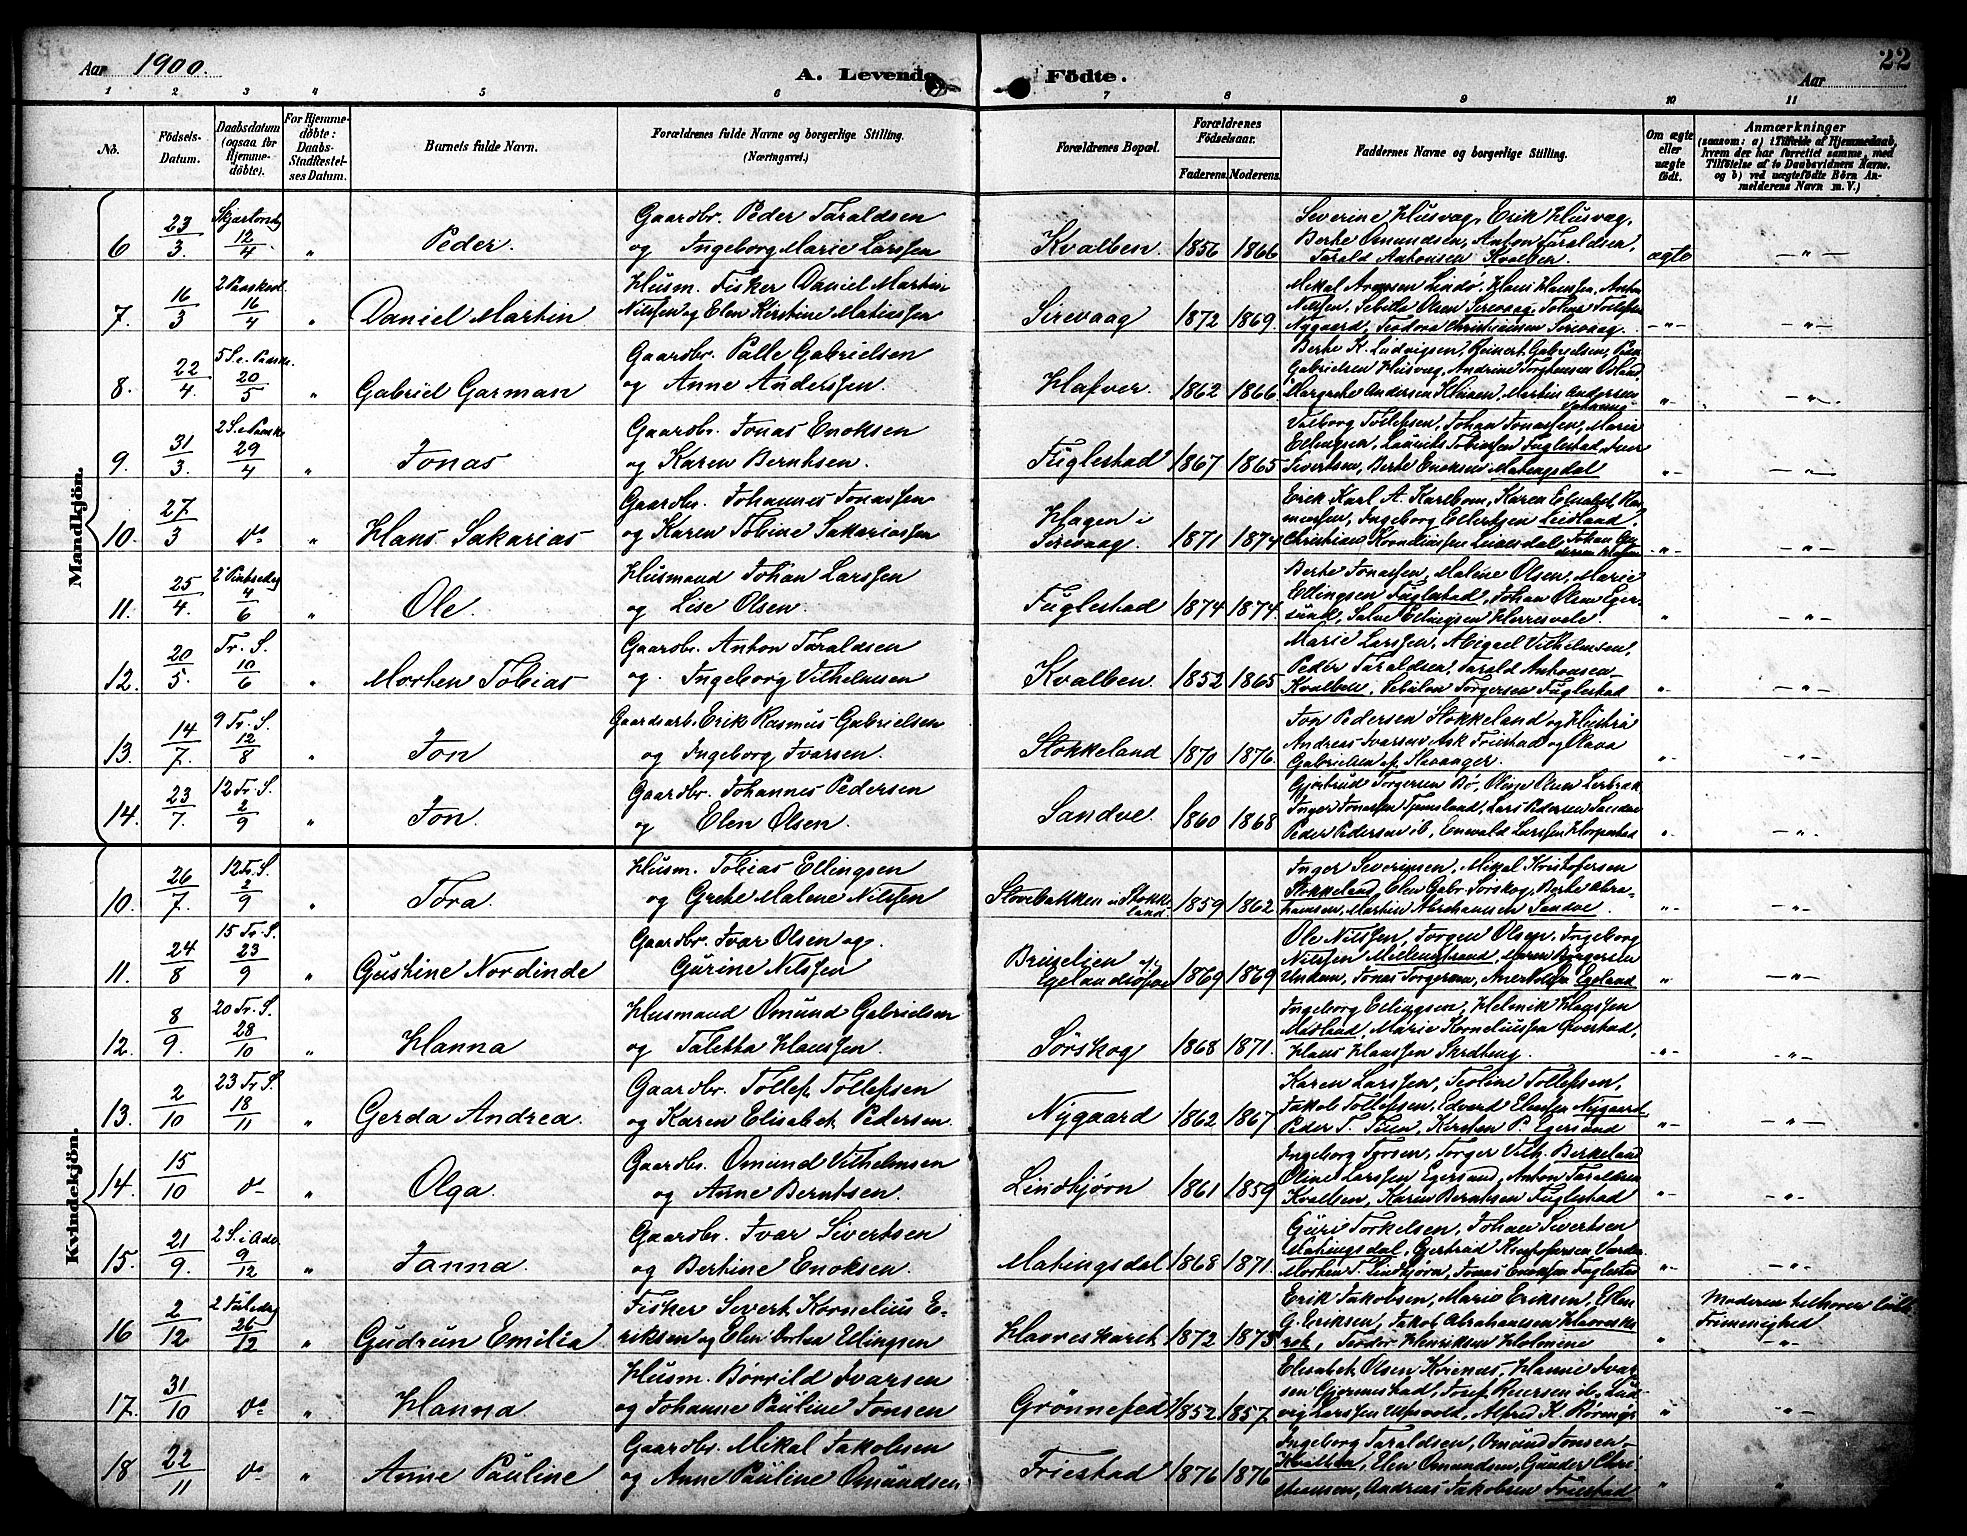 Aar 1900.
A. Levende Födte.
Aar
22
1 2 3 4 5 6 7 8 9 10 11
No.
Födsels-Datum.
Daabsdatum (ogsaa for Hjemmedöbte).
For Hjemmedöbte: Daabs-Stadfæstelses Datum.
Barnets fulde Navn.
Forældrenes fulde Navne og borgerlige Stilling. (Næringsvei.)
Forældrenes Bopæl.
Forældrenes Födselsaar.
Faderens. Moderens.
Faddernes Navne og borgerlige Stilling.
Om ægte eller uægte födt.
Anmærkninger
(saasom: a) i Tilfælde af Hjemmedaab,
hvem der har forrettet samme, med
Tilföielse af to Daabsvidners Navne.
og b) ved uægtefödte Börn An-
melderens Navn m. V.)
Mandkjön.
6 23/3 Skjærtorsdg 12/4 " Peder. Gaardbr. Peder Taraldsen
og Ingeborg Marie Larssen Kvalben. 1856 1866
Severine Husvag, Erik Husvag,
Berte Omundsen, Anton Taraldsen,
Tarald Antonsen Kvalben. ægte -"-
7. 16/3 2 Paaskedl. 16/4 " Daniel Martin Husm. Fisker Daniel Martin
Nilssen og Elen Kirstine Matiassen Sirevaag 1872 1869.
Nilssen, Sebille Olsen Sirevaag, Tobias Tollefsen
Nygaard, Teodora Christiansen Sirevaag. -"- -"-
8. 22/4. 5 S. e. Paaske. 20/5 " Gabriel Garman Gaardbr. Palle Gabrielsen
og Anne Anderssen. Hafver. 1862 1866.
Berte K. Ludvigsen, Reinert Gabrielsen, Peder
Gabrielsen Husvag, Andrine Torgersen
Margrethe Andersen, Martin Andersen "- -"-
9. 31/3. 2 S. e. Paaske 29/4 " Jonas Gaardbr. Jonas Enoksen
og Karen Berntsen. Fuglestad 1867 1865
Valborg Tollefsen, Johan Jonassen, Marie
Ellingsen, Laurits Tobiassen Fuglestad, Iver
Sivertsen, Berte Enoksen Matingsdal "- -"-
10. 27/3 do " Hans Sakarias Gaardbr. Johannes Jonassen
og Karen Tobine Sakariassen Hagen i
Sirevaag. 1871 1874
Erik Karl A. Karlbom, Karen Elisabet
Ingeborg Ellertsen Leidland,
Christian Kornelius "- -"-
11. 25/4. 2 Pintsedg 4/6 " Ole. Husmand Johan Larssen
og Lise Olsen. Fuglestad 1874 1874.
Berte Jonassen, Malene Olsen, Marie
Ellingsen Fuglestad, Johan Olsen Eger-
sund, Salve Ellingsen " -"-
12. 20/5. Tr. S. 10/6 " Morten Tobias Gaardbr. Anton Taraldsen
og Ingeborg Vilhelmsen Kvalben. 1852 1865
Marie Larssen, Abigael Vilhelmsen,
Peder Taraldsen, Tarald Antonsen
Kvalben, Torgersen Fuglestad "- -"-
13. 14/7. 9 Tr. S. 12/8 " Jon Gaardsarb. Erik Rasmus Gabrielsen
og Ingeborg Ivarsen. Stokkeland 1870 1876.
Jon Pedersen Stokkeland og Hustru
Andreas Ivarsen Ask Friestad og Olava
Gabrielsen af Stavanger. "- -"-
14. 23/7. 12 Tr. S. 2/9 " Jon. Gaardbr. Johannes Pedersen
og Elen Olsen. Sandve. 1860 1868
Gjertrud Torgersen Bø,
Inger Jonassen Lars Pedersen Sandve
Peder Pedersen ib., Enevald Larssen " -"-
Kvindekjön.
10. 26/7. 12 Tr. S. 2/9 " Tora. Husm. Tobias Ellingsen
og Grete Malene Nilssen Stokke-
land 1859 1862.
Inger Severinsen, Mikal Kristofersen
Stokkeland, Elen Gabr. Sørskog, Berte Abra-
hamsen, Martin Abrahamsen Sandve. "- -"-
11. 24/8 15 Tr. S. 23/9 " Gustine Nordinde Gaardbr. Ivar Olsen og
Gurine Nilssen 1869 1869
Ole Nilssen, Jørgen Olsen, Ingeborg
Nilssen
Jonas Torgersen, Egeland "- -"-
12. 8/9. 20 Tr. S. 28/10 " Hanna Husmand Omund Gabrielsen
og Taletta Hanssen. Sørskog 1868 1871.
Ingeborg Ellingsen, Helmik Hanssen
Marie Korneliussen
Hans Hanssen -"- -"-
13. 2/10 23 Tr. S. 18/11 " Gerda Andrea. Gaardbr. Tollef Tollefsen
og Karen Elisabet Pedersen. Nygaard 1862 1867
Karen Larssen, Teoline Tollefsen,
Jakob Tollefsen, Edvard Nygaard,
Peder T. Kirsten P. Egersund "- -"-
14. 15/10 do- " Olga. Gaardbr. Omund Vilhelmsen
og Anne Berntsen. Lindtjørn 1861 1859
Ingeborg Torger Vilh. Berkeland
Oline Larssen Egersund, Anton Taraldsen
Kvalben, Karen Berntsen Fuglestad "- -"-
15. 21/9. 2 S. i Adv. 9/12 " Janna. Gaardbr. Ivar Sivertsen
og Bertine Enoksen. Matingsdal 1868 1871.
Guri Torkelsen, Johan Sivertsen
Matingsdal, Gertrud Kristofersen
Morten T. Lindtjørn, Jonas Enoksen Fuglestad "- -"-
16 2/12 2 Juledag 26/12 " Gudrun Emilia Fisker Sivert Kornelius E-
riksen og Elen Ellingsen Havneskaret 1872 1873
Erik Jakobsen, Marie Eriksen, Elen
G. Eriksen, Jakob Abrahamsen
Teodor Henriksen Holmene " Moderen tilhører luth.
Frimenighed
-"-
17. 31/10 do " Hanna. Husm. Børrild Ivarsen
og Johanne Pauline Jonsen Grønnefed 1852 1857
Elisabet Olsen Hanne Ivar-
sen Josef ib, Lud-
vig Larssen Alfred K. " -"-
18 22/11 do " Anne Pauline Gaardbr. Mikal Jakobsen
og Anne Pauline Omundsen Friestad 1876 1876
Ingeborg Taraldsen, Omund Jonsen
Kvalben, Elen Omundsen, Gunder Chri-
stiansen, Andreas Jakobsen Friestad " "